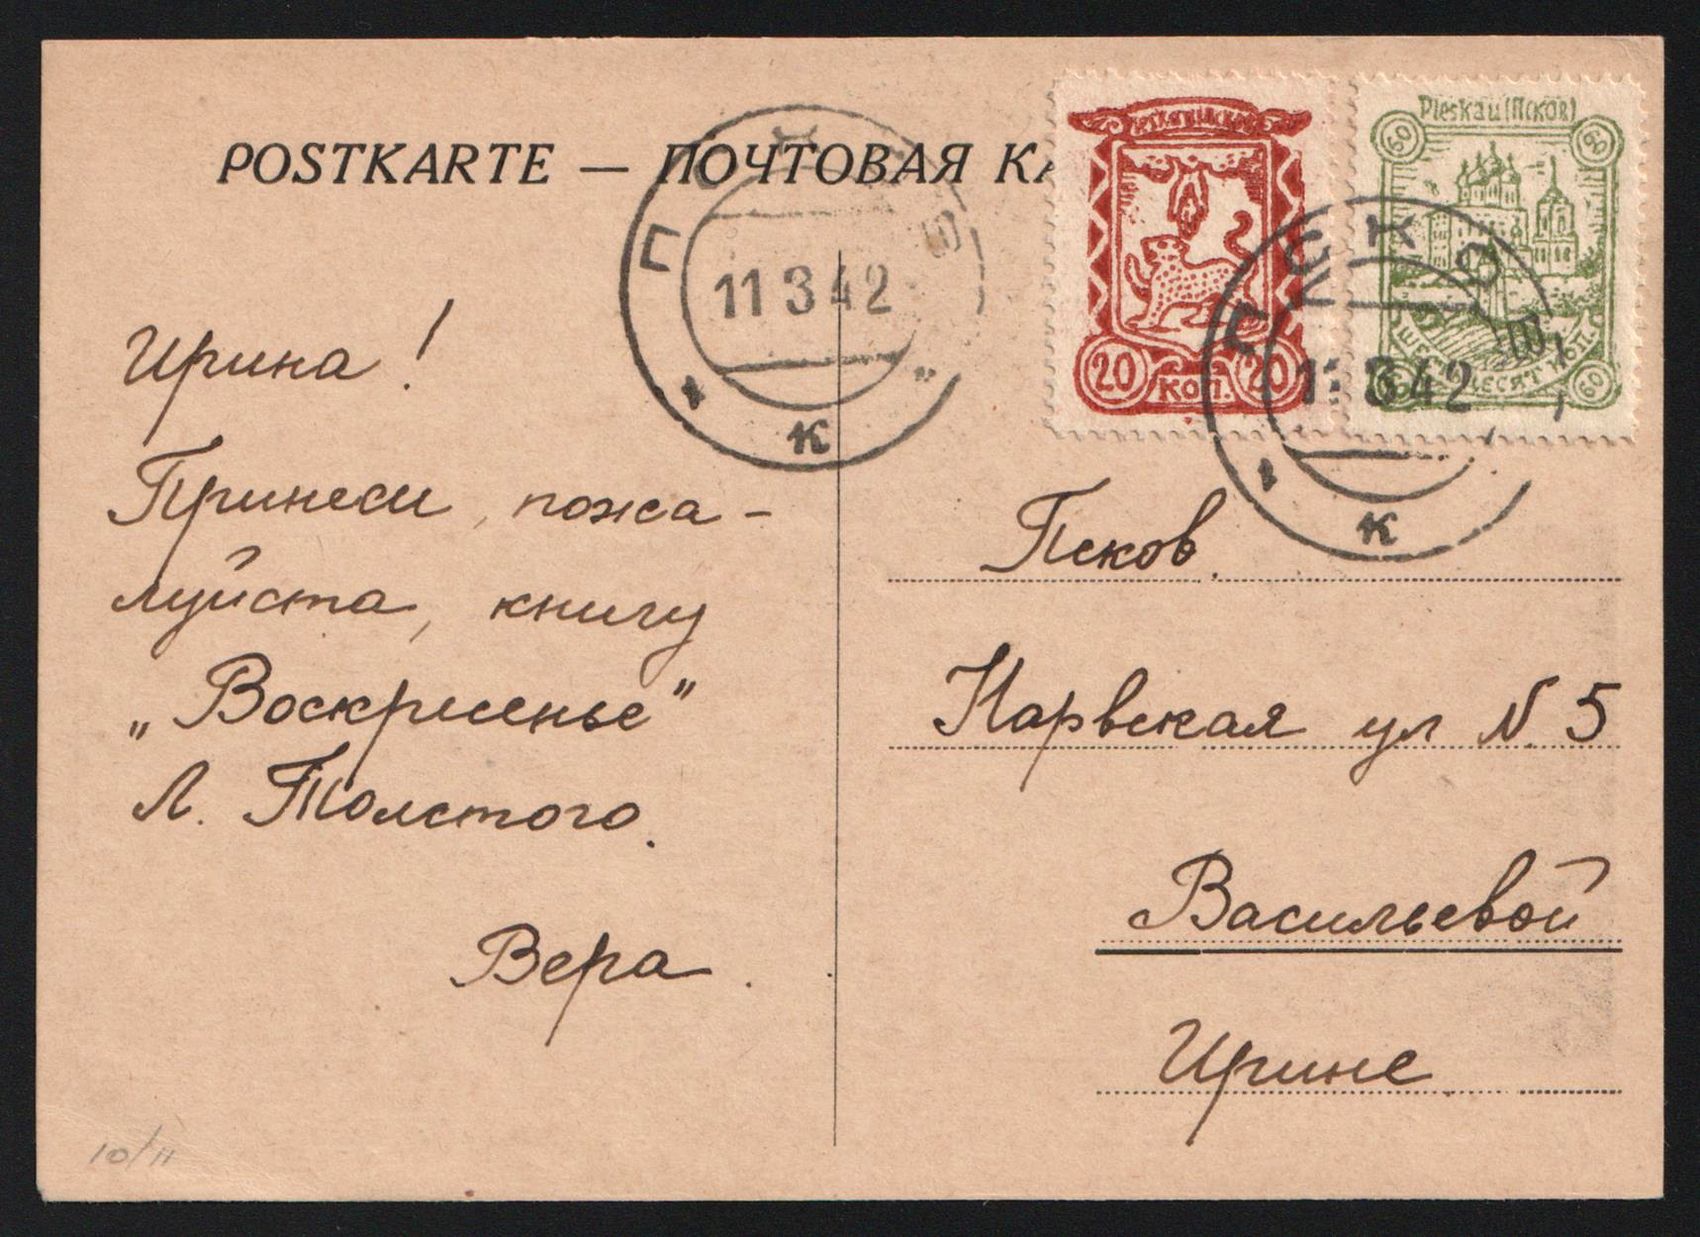 POSTKARTE — ПОЧТОВАЯ КА
Pleskau (Псков)
60 60
20 КОП. 20
60
ПСКОВ
11 3 42
К
11 3 42
К
Ирина!
Принеси, пожа-
луйста, книгу
„Воскресенье"
Л. Толстого.
Вера.
Псков.
Нарвская ул N. 5
Васильевой
Ирине
10/11